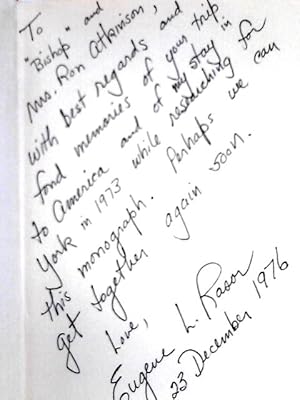 To
"Bishop" and
Mrs. Ron Atkinson, and
with best regards and
fond memories of your trip
to America and of my stay in
York in 1973 while researching for
this monograph. Perhaps we can
get together again soon.
Love,
Eugene L. Rasor
23 December 1976